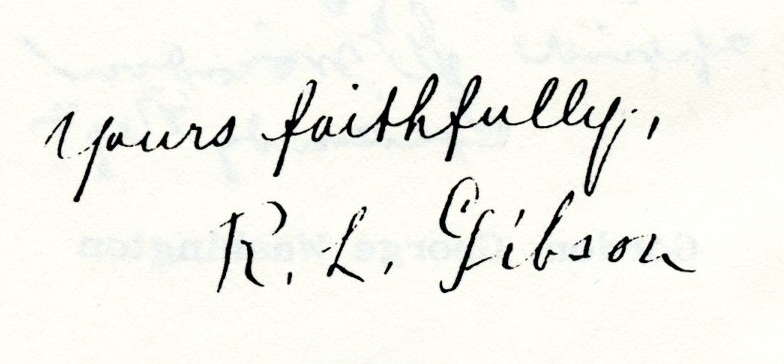 Yours faithfully,
R. L. Gibson